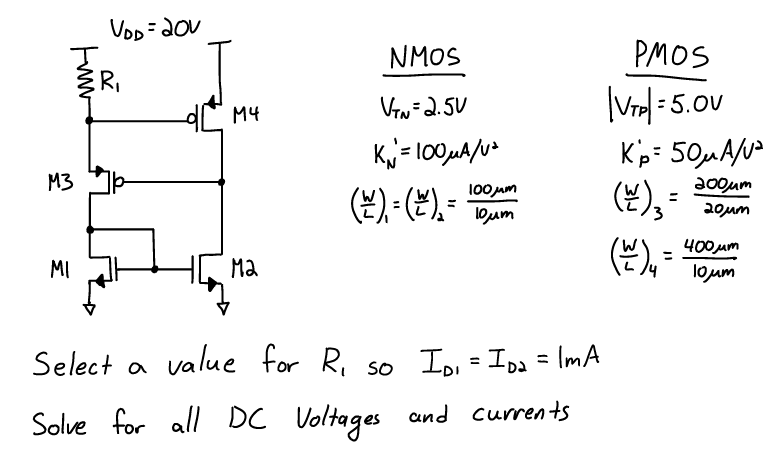 V_DD = 20V
R₁
M4
M3
M1
M2
NMOS
V_TN = 2.5V
K'_N = 100μA/V²
(W/L)₁ = (W/L)₂ = 100μm/10μm
PMOS
|V_TP| = 5.0V
K'_P = 50μA/V²
(W/L)₃ = 200μm/20μm
(W/L)₄ = 400μm/10μm
Select a value for R₁ so I_D1 = I_D2 = 1mA
Solve for all DC Voltages and currents